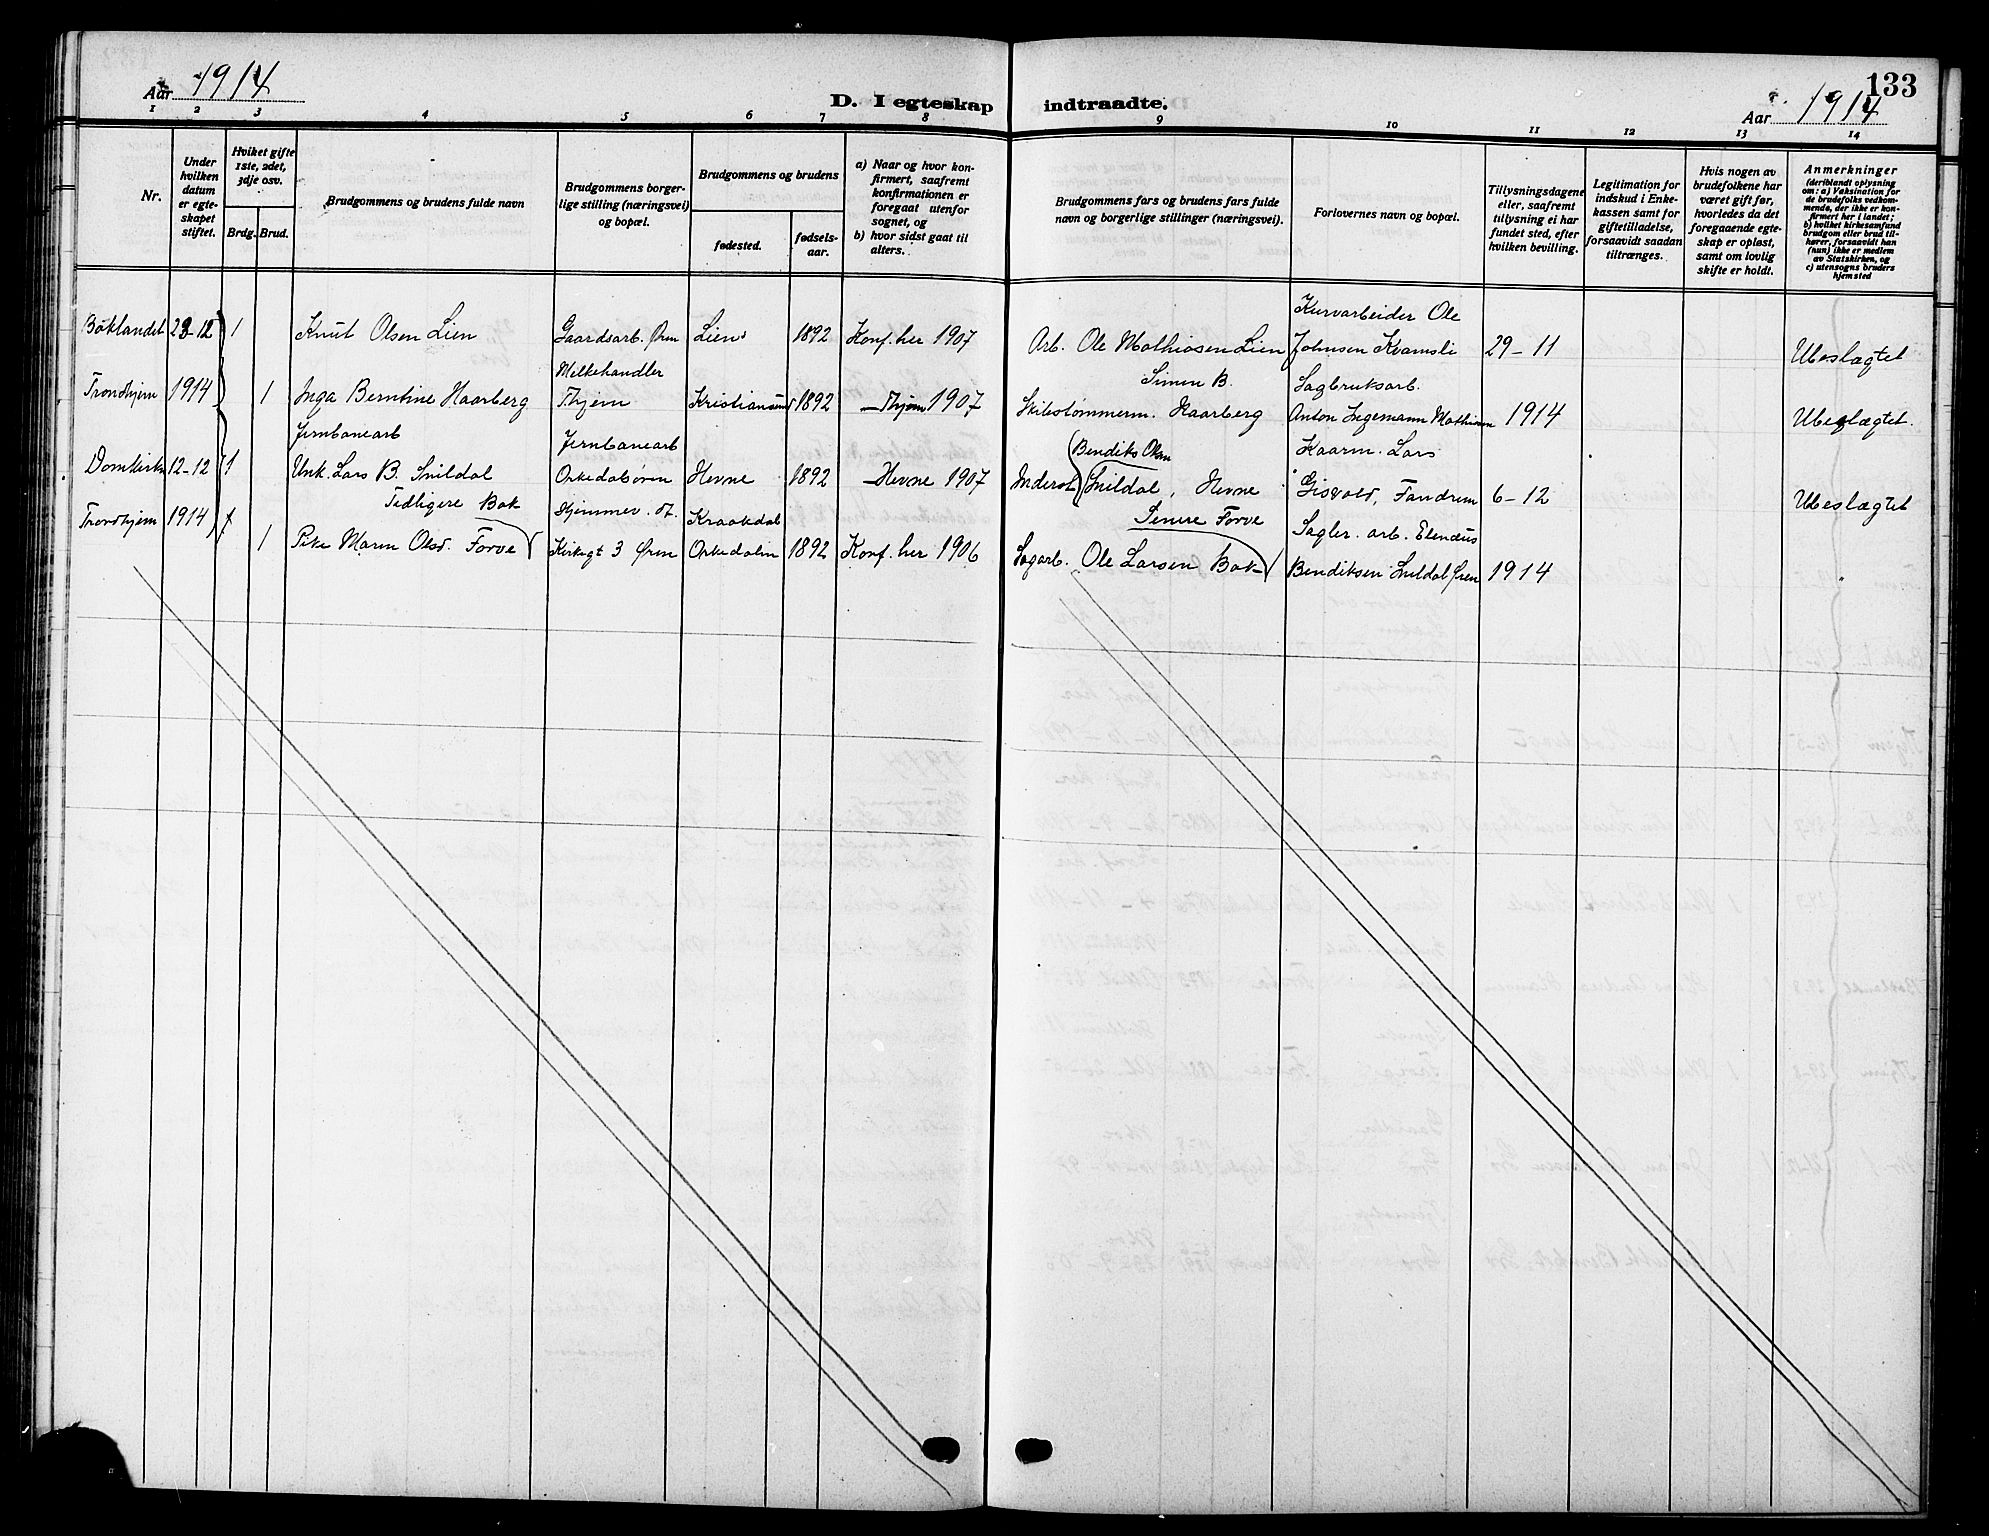 133
Aar 1914
D. I egteskap indtraadte.
Aar 1914
1 2 3 4 5 6 7 8 9 10 11 12 13 14
Nr.
Under hvilken datum er egteskapet stiftet.
Hviket gifte 1ste, 2det, 3dje osv.
Brdg. Brud.
Brudgommens og brudens fulde navn
Brudgommens borgerlige stilling (næringsvei) og bopæl.
Brudgommens og brudens
fødested.
fødselsaar.
a) Naar og hvor konfirmert, saafremt konfirmationen er foregaat utenfor sognet, og
b) hvor sidst gaat til alters.
Brudgommens fars og brudens fars fulde navn og borgerlige stillinger (næringsvei).
Forlovernes navn og bopæl.
Tillysningsdagene eller, saafremt tillysning ei har fundet sted, efter hvilken bevilling.
Legitimation for indskud i Enkekassen samt for giftetilladelse, forsaavidt saadan tiltrænges.
Hvis nogen av brudefolkene har været gift før, hvorledes da det foregaaende egteskap er opløst, samt om lovlig skifte er holdt.
Anmerkninger
(deriblandt oplysning om: a) Vaksination for de brudefolks vedkommende, der ikke er konfirmert her i landet; b) hvilket kirkesamfund brudgom eller brud tilhører, forsaavidt han (hun) ikke er medlem av Statskirken, og c) utensogns bruders hjemsted
Kurvarbeider Ole
Böklandet 23-12 1 Knut Olsen Lien Gaardsarb. Øren Lien 1892 Konf. her 1907 Arb. Ole Mathiasen Lien Johnsen Kvamsli 29-11 Ubeslægtet
Melkehandler Simen B. Sagbruksarb.
Trondhjem 1914 1 Inga Berntine Haarberg Thjem Kristiansund 1892 - Thjem 1907 Skibstømmerm. Haarberg Anton Ingemann Mathisen 1914 Ubeslægtet.
Jernbanearb Jernbanearb Bendiks Olsen Kaarm. Lars
Domkirken 12-12 1 Unk. Lars B. Snildal Orkedalsøren Hevne 1892 - Hevne 1907 Inderst Snildal, Hevne Gisvold, Fandrem 6-12 Ubeslægtet
Tidligere Bak Hjemmev. dt. Kraakdal Senere Forve Sagler. arb. Elendius
Trondhjem 1914 1 Pike Maren Olsd. Forve Kirkegt 3 Øren Orkedalen 1892 Konf. her 1906 Sagarb. Ole Larsen Bak Bendiksen Snildal Øren 1914 "